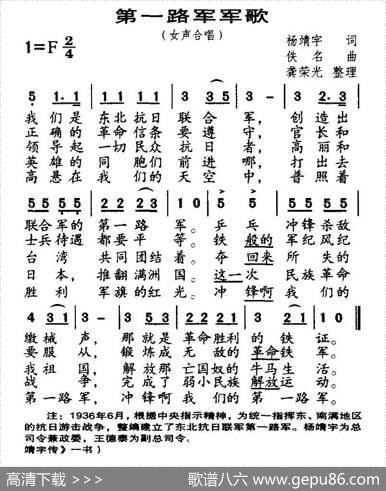 第一路军军歌
(女声合唱)
1=F 2/4
杨靖宇 词
佚名 曲
龚荣光 整理
5 1·1 | 1 1 1 1 | 3 3 (3 5) | 3 - | 3 2·3 |
我们是 东北抗日 联合 军, 创造出
正确的 革命信条 要遵 守, 官长和
领导起 一切民众 抗日 者, 高丽和
英雄的 同胞们 前进 哪, 打出去
高悬在 我们的 天空 中, 普照着
联合军的 第一路 军。 乒乓 冲锋杀敌
士兵待遇 都要平 等。 铁般的 军纪风纪
台湾 共同团结 着。 夺回来 所失的
日本, 推翻满洲 国。 这一次 民族革命
胜利 军旗的红 光。 冲锋啊 我们的
缴械声, 那就是 革命胜利 的铁证。
要服从, 锻炼成 无敌的 革命铁军。
我祖国, 解放那 亡国奴的 牛马生活。
战争, 完成了 弱小民族 解放运动。
第一路军, 冲锋啊 我们的 第一路军。
注:1936年6月,根据中央指示精神,为统一指挥东、南满地区
的抗日游击战争,整编建立了东北抗日联军第一路军。杨靖宇为总
司令兼政委,王德泰为副总司令。
靖宇传》一书)
高清下载 => 歌谱八六 www.gepu86.com